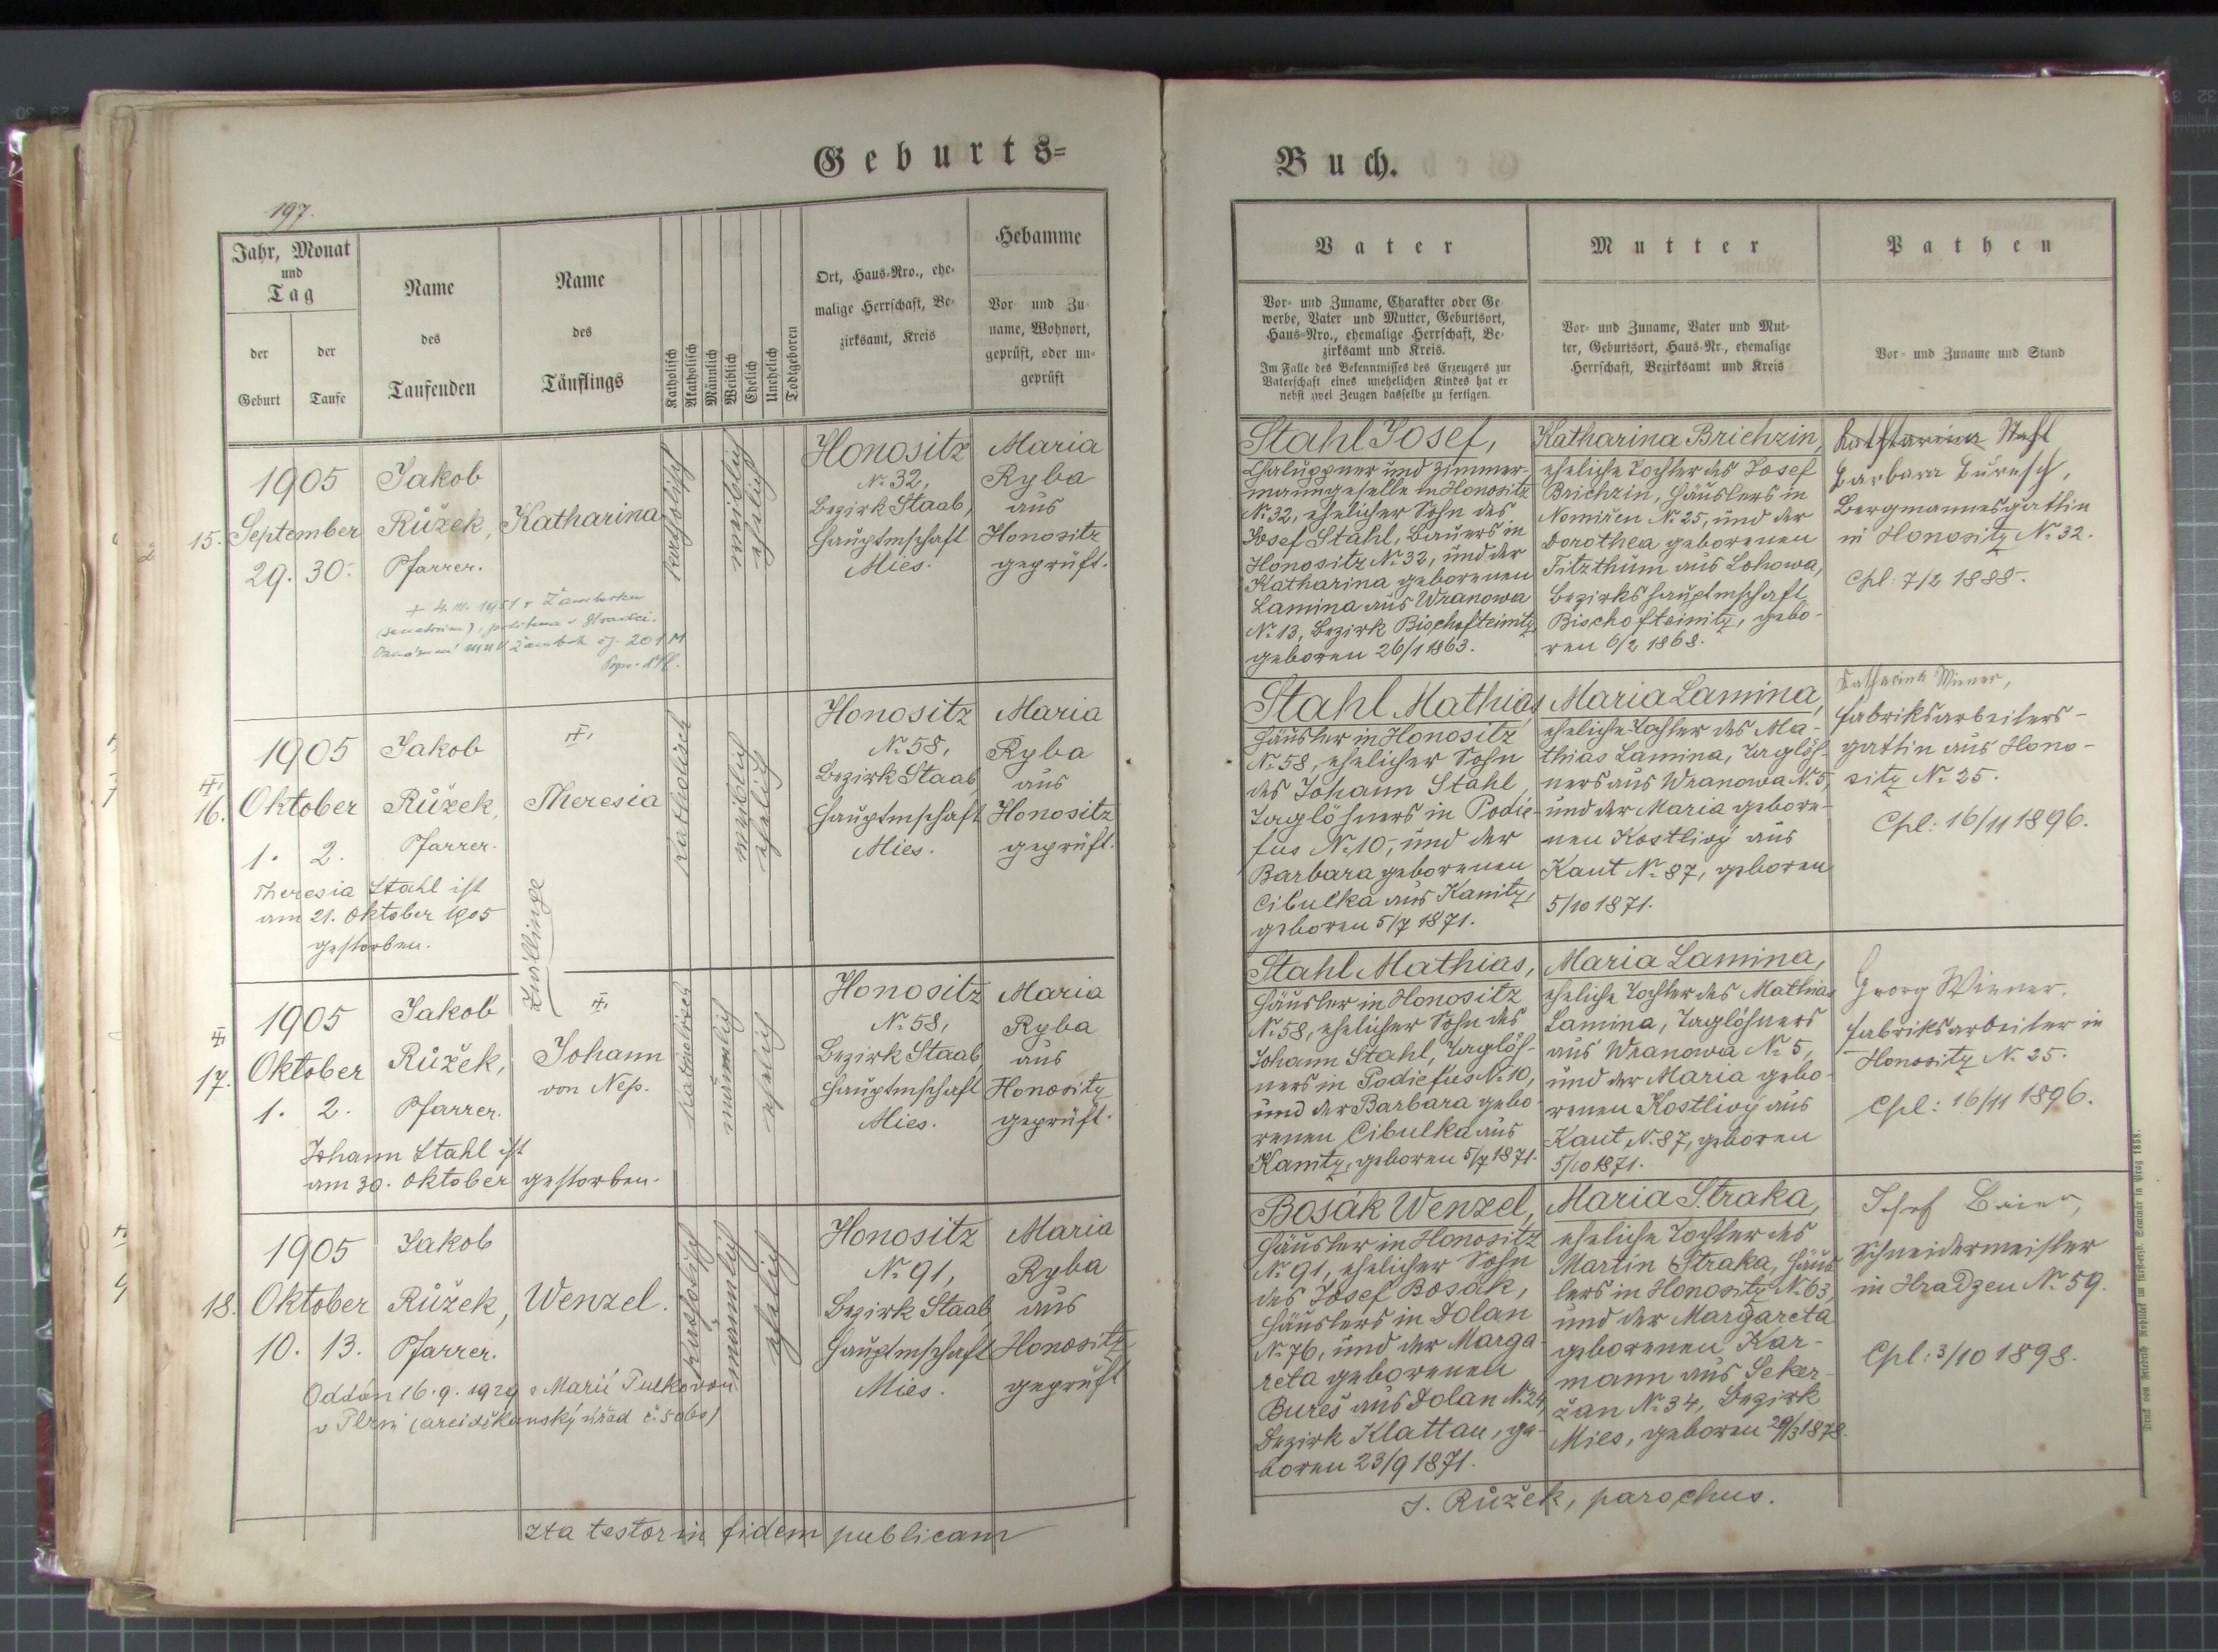 Geburts=
197.
Jahr, Monat
und
Tag
der
Geburt
der
Taufe
Name
des
Taufenden
Name
des
Täuflings
Katholisch
Akatholisch
Männlich
Weiblich
Ehelich
Unehelich
Todtgeboren
Ort, Haus-Nro., ehe-
malige Herrschaft, Be-
zirksamt, Kreis
Hebamme
Vor und Zu-
name, Wohnort,
geprüft, oder un-
geprüft
15.
1905
September
29. 30.
Jakob
Růžek,
Pfarrer.
Katharina
katholisch
weiblich
ehelich
Honositz
No 32,
Bezirk Staab,
Hauptmschaft
Mies.
Maria
Ryba
aus
Honositz
geprüft.
16.
1905
Oktober
1. 2.
Jakob
Růžek,
Pfarrer.
Theresia
katholisch
weiblich
ehelich
Honositz
No 58,
Bezirk Staab
Hauptmschaft
Mies.
Maria
Ryba
aus
Honositz
geprüft.
Theresia Stahl ist
am 21. Oktober 1905
gestorben.
Zwillinge
17.
1905
Oktober
1. 2.
Jakob
Růžek,
Pfarrer.
Johann
von Nep.
katholisch
männlich
ehelich
Honositz
No 58,
Bezirk Staab
Hauptmschaft
Mies.
Maria
Ryba
aus
Honositz
geprüft.
Johann Stahl ist
am 30. Oktober gestorben.
18.
1905
Oktober
10. 13.
Jakob
Růžek,
Pfarrer.
Wenzel.
katholisch
männlich
ehelich
Honositz
No 91,
Bezirk Staab
Hauptmschaft
Mies.
Maria
Ryba
aus
Honositz
geprüft
Oddán 16.9.1929 s Marií
v Plzni
Ita testor in fidem publicam
Buch.
Vater
Vor- und Zuname, Charakter oder Ge-
werbe, Vater und Mutter, Geburtsort,
Haus-Nro., ehemalige Herrschaft, Be-
zirksamt und Kreis.
Im Falle des Bekenntnisses des Erzeugers zur
Vaterschaft eines unehelichen Kindes hat er
nebst zwei Zeugen dasselbe zu fertigen.
Mutter
Vor- und Zuname, Vater und Mut-
ter, Geburtsort, Haus-Nr., ehemalige
Herrschaft, Bezirksamt und Kreis
Pathen
Vor- und Zuname und Stand
Stahl Josef,
Chaluppner und Zimmer-
manngeselle in Honositz
No 32, ehelicher Sohn des
Josef Stahl, Bauers in
Honositz No 32, und der
Katharina geborenen
Lamina aus Wranowa
No 13, Bezirk Bischofteinitz
geboren 26/1 1863.
Katharina Brichzin,
eheliche Tochter des Josef
Brichzin, Häuslers in
Nomiřen No 25, und der
Dorothea geborenen
Fitzthum aus Lohowa,
Bezirkshauptmschaft
Bischofteinitz, gebo-
ren 6/2 1868.
Katharina Stahl
Barbara Buresch,
Bergmannesgattin
in Honositz No 32.
Cpl: 7/2 1888.
Stahl Mathias
Häusler in Honositz
No 58, ehelicher Sohn
des Johann Stahl,
Taglöhners in Podie-
fus No 10, und der
Barbara geborenen
Cibulka aus Kanitz,
geboren 5/7 1871.
Maria Lamina,
eheliche Tochter des Ma-
thias Lamina, Taglöh-
ners aus Wranowa No 5,
und der Maria gebore-
nen Kostlivý aus
Kaut No 87, geboren
5/10 1871.
Katharina Wiener,
Fabriksarbeiters-
gattin aus Hono-
sitz No 25.
Cpl: 16/11 1896.
Stahl Mathias,
Häusler in Honositz
No 58, ehelicher Sohn des
Johann Stahl, Taglöh-
ners in Podiefus No 10,
und der Barbara gebo-
renen Cibulka aus
Kanitz, geboren 5/7 1871.
Maria Lamina,
eheliche Tochter des Mathias
Lamina, Taglöhners
aus Wranowa No 5,
und der Maria gebo-
renen Kostlivý aus
Kaut No 87, geboren
5/10 1871.
Georg Wiener,
Fabriksarbeiter in
Honositz No 25.
Cpl: 16/11 1896.
Bosák Wenzel,
Häusler in Honositz
No 91, ehelicher Sohn
des Josef Bosák,
Häuslers in Dolan
No 76, und der Marga-
reta geborenen
Bureš aus Dolan No 24,
Bezirk Klattau, ge-
boren 23/9 1871.
Maria Straka,
eheliche Tochter des
Martin Straka, Häus-
lers in Honositz No 63,
und der Margareta
geborenen Kar-
mann aus Seker-
žan No 34, Bezirk
Mies, geboren 29/3 1878.
Josef Beier,
Schneidermeister
in Hradzen No 59.
Cpl: 3/10 1898.
J. Růžek, parochus.